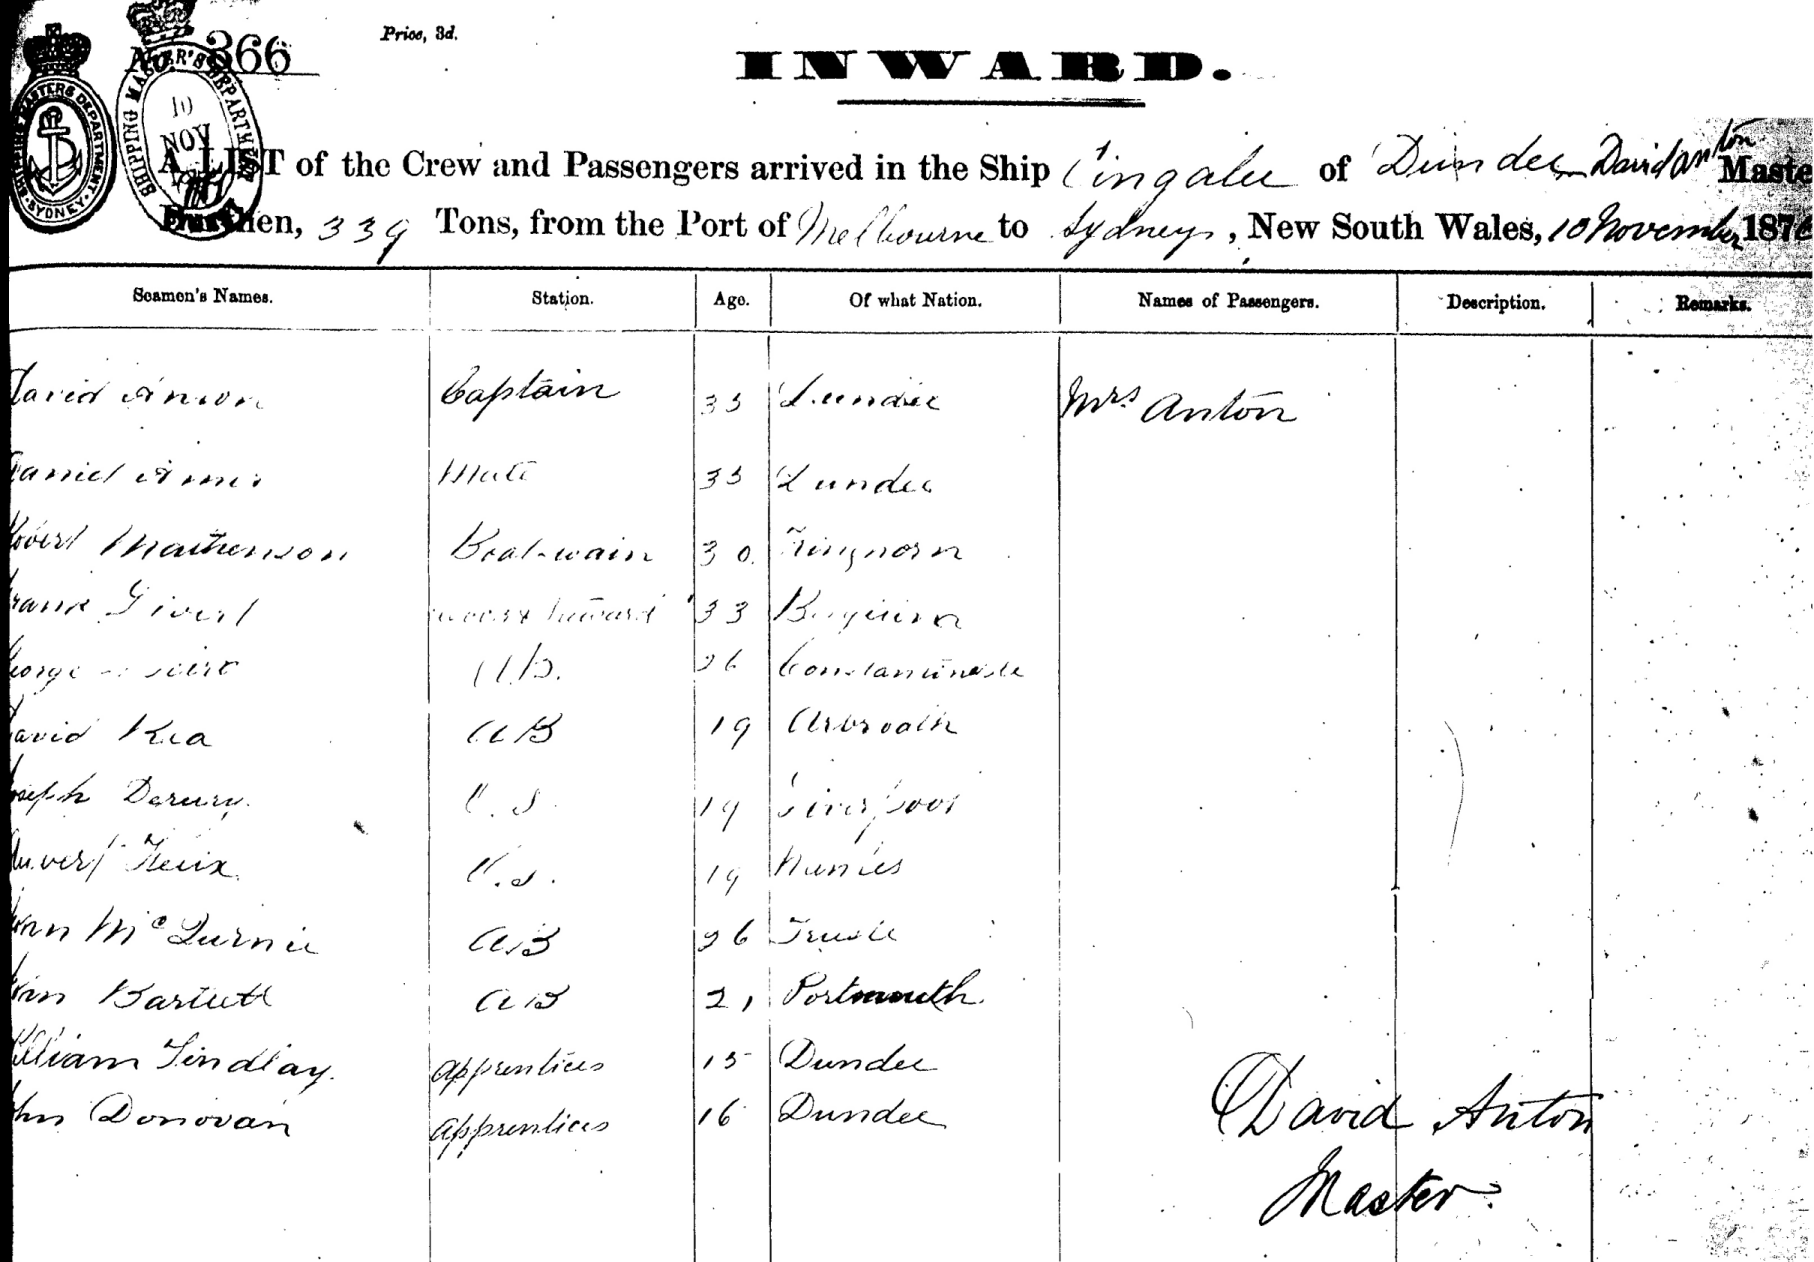 No. 366
Price, 3d.
INWARD.
SHIPPING MASTERS DEPARTMENT SYDNEY
SHIPPING MASTER'S DEPARTMENT
10 NOV
A LIST of the Crew and Passengers arrived in the Ship Cingalee of Dundee David Anton Maste
Burthen, 339 Tons, from the Port of Melbourne to Sydney, New South Wales, 10 November 187
Seamen's Names. Station. Age. Of what Nation. Names of Passengers. Description. Remarks.
David Anton Captain 35 Dundee Mrs Anton
Daniel Mate 35 Dundee
Robert Mathewson Boatswain 30. Kinghorn
Frank 33
George A.B. 26 Constantinople
David Kea AB 19 Arbroath
Joseph O.S. 19 Liverpool
O.S. 19 Nantes
John Mc AB 26
John Bartlett AB 21 Portsmouth.
William Findlay. apprentices 15 Dundee
John Donovan apprentices 16 Dundee
David Anton
Master.